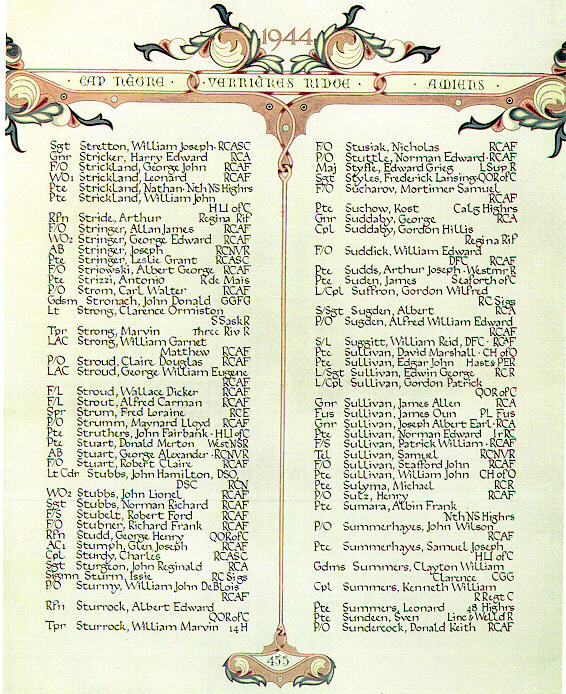 1944
CAP NÈGRE · VERRIÈRES RIDGE · AMIENS
Sgt Stretton, William Joseph · RCASC
Gnr Stricker, Harry Edward RCA
F/O Strickland, George John RCAF
WO1 Strickland, Leonard RCAF
Pte Strickland, Nathan · Nth NS Highrs
Pte Strickland, William John
HLI of C
Rfn Stride, Arthur Regina Rif
F/O Stringer, Allan James RCAF
WO2 Stringer, George Edward RCAF
AB Stringer, Joseph RCNVR
Pte Stringer, Leslie Grant RCASC
F/O Striowski, Albert George RCAF
Pte Strizzi, Antonio R de Mais
P/O Strom, Carl Walter RCAF
Gdsm Stronach, John Donald GGFG
Lt Strong, Clarence Ormiston
S Sask R
Tpr Strong, Marvin Three Riv R
LAC Strong, William Garnet
Matthew RCAF
P/O Stroud, Claire Douglas RCAF
LAC Stroud, George William Eugene
RCAF
F/L Stroud, Wallace Dicker RCAF
F/L Strout, Alfred Carman RCAF
Spr Strum, Fred Loraine RCE
P/O Strumm, Maynard Lloyd RCAF
Pte Struthers, John Fairbank · HLI of C
Pte Stuart, Donald Merton West NSR
AB Stuart, George Alexander · RCNVR
F/O Stuart, Robert Claire RCAF
Lt Cdr Stubbs, John Hamilton, DSO,
DSC RCN
WO2 Stubbs, John Lionel RCAF
Sgt Stubbs, Norman Richard RCAF
F/S Stubelt, Robert Ford RCAF
F/O Stubner, Richard Frank RCAF
Rfn Studd, George Henry QOR of C
AC1 Stumph, Glen Joseph RCAF
Cpl Sturdy, Charles RCASC
Sgt Sturgeon, John Reginald RCA
Sigmn Sturm, Issie RC Sigs
P/O Sturmy, William John DeBlois
RCAF
Rfn Sturrock, Albert Edward
QOR of C
Tpr Sturrock, William Marvin 14 H
F/O Stusiak, Nicholas RCAF
P/O Stuttle, Norman Edward · RCAF
Maj Styffe, Edward Grieg L Sup R
Sgt Styles, Frederick Lansing · QOR of C
F/O Sucharov, Mortimer Samuel
RCAF
Pte Suchow, Kost Calg Highrs
Gnr Suddaby, George RCA
Cpl Suddaby, Gordon Hillis
Regina Rif
F/O Suddick, William Edward
DFC RCAF
Pte Sudds, Arthur Joseph · Westmr R
Pte Suden, James Seaforth of C
L/Cpl Suffron, Gordon Wilfred
RC Sigs
S/Sgt Sugden, Albert RCA
P/O Sugden, Alfred William Edward
RCAF
S/L Suggitt, William Reid, DFC · RCAF
Pte Sullivan, David Marshall · CH of O
Pte Sullivan, Edgar John Hast & PER
L/Sgt Sullivan, Edwin George RCR
L/Cpl Sullivan, Gordon Patrick
QOR of C
Gnr Sullivan, James Allen RCA
Fus Sullivan, James Oun PL Fus
Gnr Sullivan, Joseph Albert Earl · RCA
Pte Sullivan, Norman Edward Ir RC
F/S Sullivan, Patrick William · RCAF
Tel Sullivan, Samuel RCNVR
F/O Sullivan, Stafford John RCAF
Pte Sullivan, William John CH of O
Pte Sulyma, Michael RCR
P/O Sutz, Henry RCAF
Pte Sumara, Albin Frank
Nth NS Highrs
P/O Summerhayes, John Wilson
RCAF
Pte Summerhayes, Samuel Joseph
HLI of C
Gdms Summers, Clayton William
Clarence CGG
Cpl Summers, Kenneth William
R Regt C
Pte Summers, Leonard 48 Highrs
Pte Sundeen, Sven Linc & Welld R
P/O Sundercock, Donald Keith RCAF
455